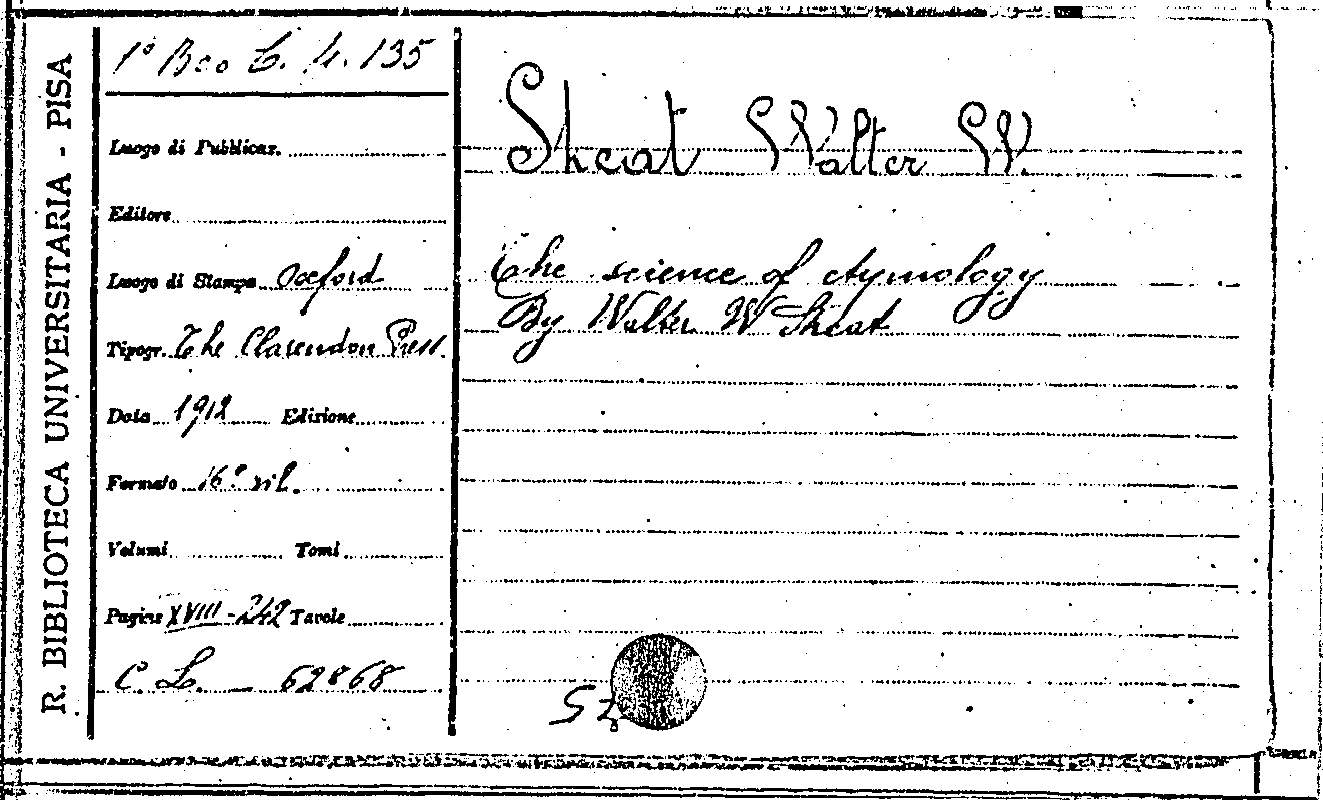 R. BIBLIOTECA UNIVERSITARIA - PISA
1° Bco C. 4. 135
Luogo di Pubblicaz.
Editore
Luogo di Stampa Oxford
Tipogr. The Clarendon Press
Data 1912 Edizione
Formato 16° ril.
Volumi Tomi
Pagine XVIII - 242 Tavole
C. L. — 62868
Skeat Walter W.
The science of etymology
By Walter W Skeat